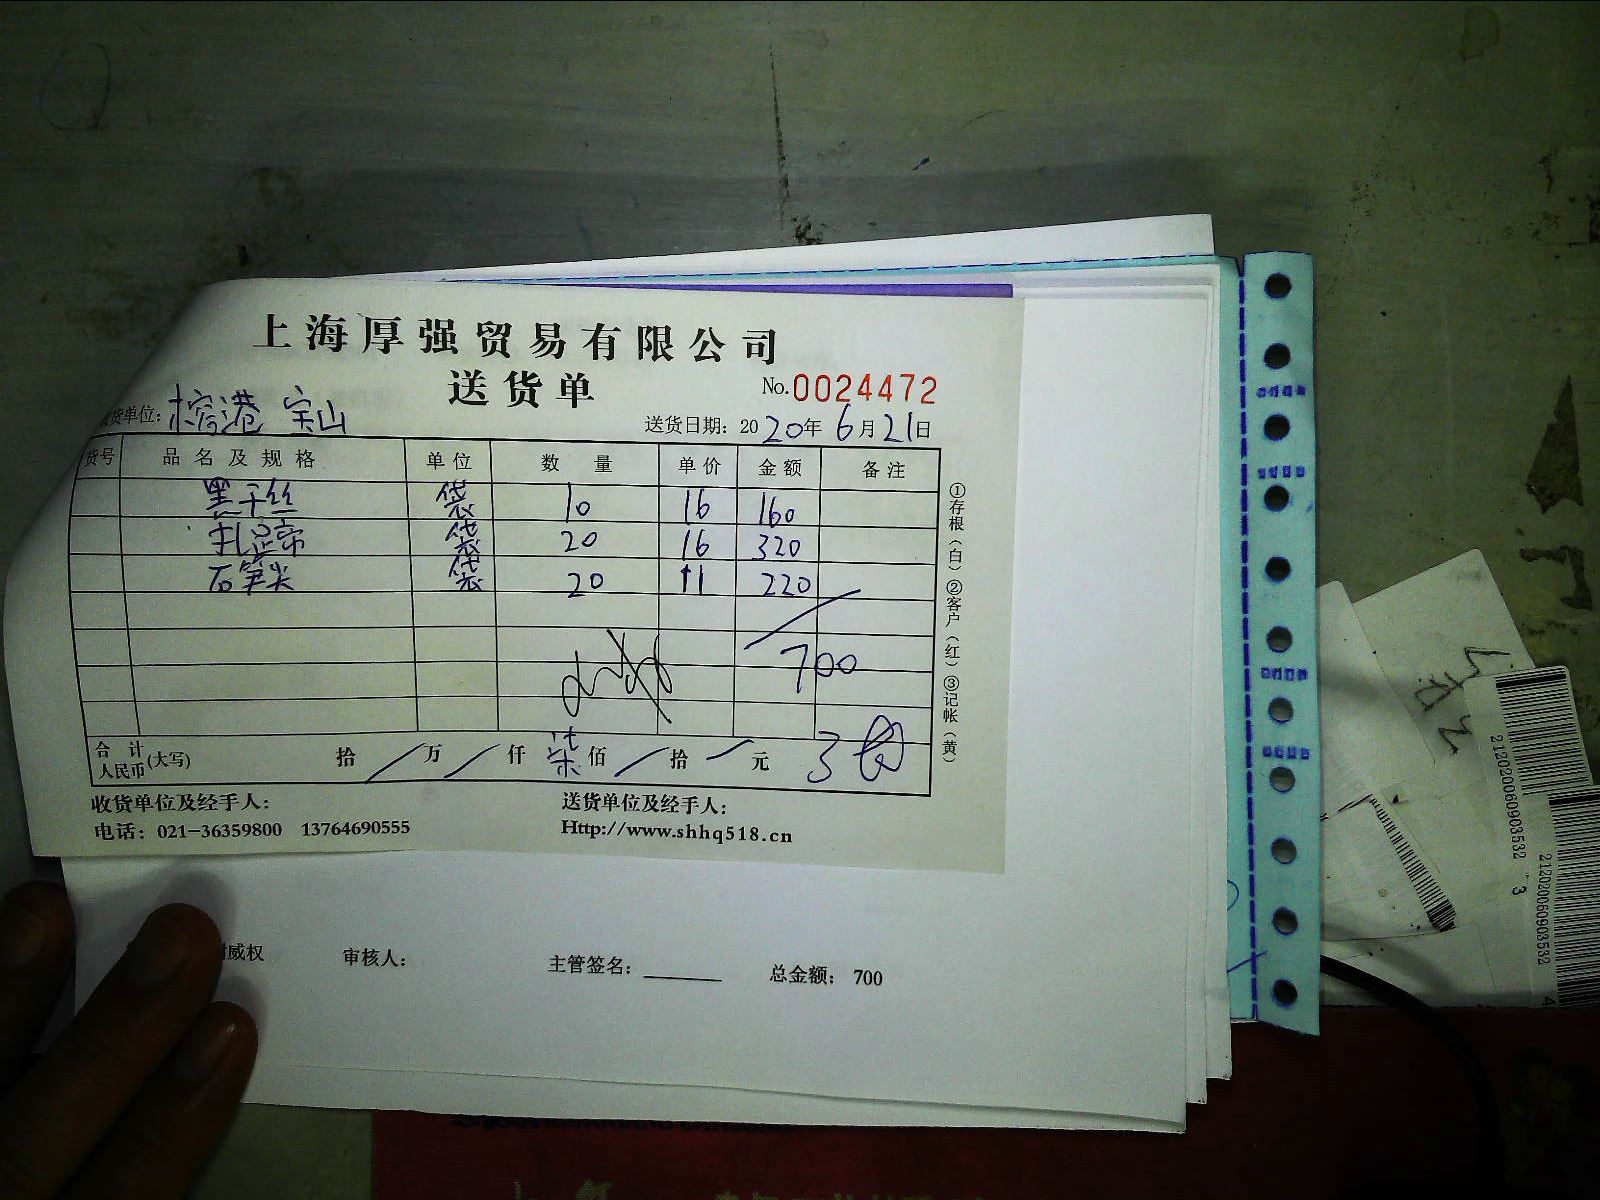 上海厚强贸易有限公司
送货单
No.0024472
货单位： 榕港 宝山
送货日期：2020年6月21日
货号 品名及规格 单位 数量 单价 金额 备注
黑干丝 袋 10 16 160
扎蹄 袋 20 16 320
石笋尖 袋 20 11 220
700
合计人民币(大写) 拾 万 仟 柒佰 拾 元
3
①存根（白）②客户（红）③记帐（黄）
收货单位及经手人： 送货单位及经手人：
电话：021-36359800 13764690555 Http://www.shhq518.cn
威权 审核人： 主管签名： 总金额：700
212020060903532 3
212020060903532 4